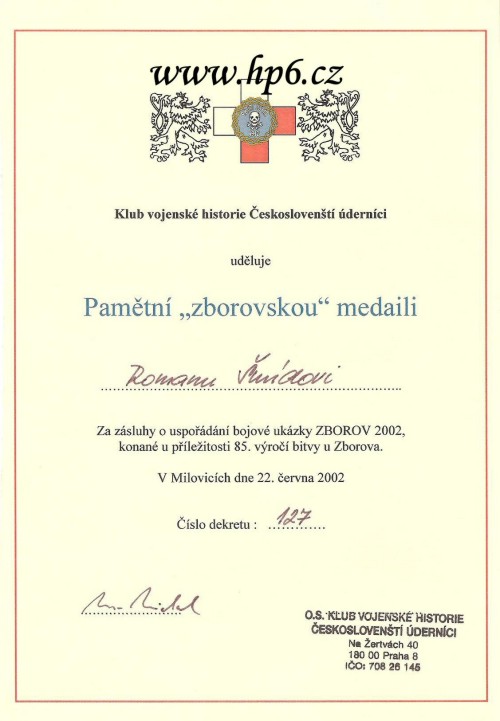 www.hp6.cz
Klub vojenské historie Českoslovenští úderníci
uděluje
Pamětní „zborovskou“ medaili
Romanu Šmídovi
Za zásluhy o uspořádání bojové ukázky ZBOROV 2002,
konané u příležitosti 85. výročí bitvy u Zborova.
V Milovicích dne 22. června 2002
Číslo dekretu : 127
O.S. KLUB VOJENSKÉ HISTORIE
ČESKOSLOVENŠTÍ ÚDERNÍCI
Na Žertvách 40
180 00 Praha 8
IČO: 708 26 145